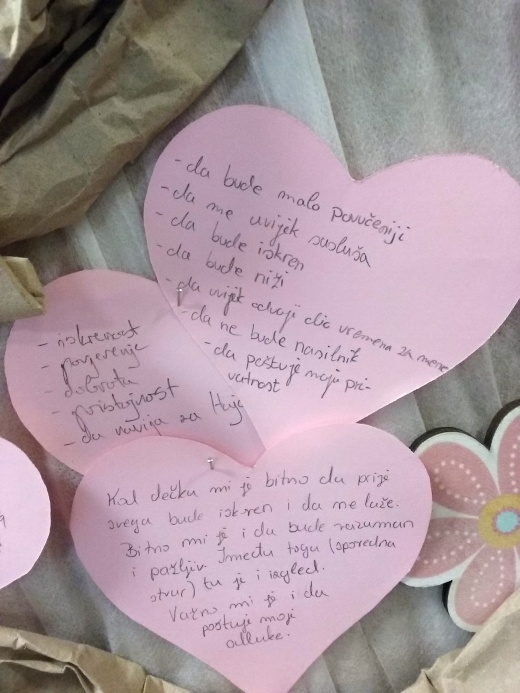 - da bude malo povučeniji
- da me uvijek sasluša
- da bude iskren
- da bude niži
- da uvijek odvoji dio vremena za mene
- da ne bude nasilnik
- da poštuje moju pri-
vatnost
- iskrenost
- povjerenje
- dobrota
- pristojnost
- da navija za
Kod dečka mi je bitno da prije
svega bude iskren i da ne laže.
Bitno mi je i da bude razuman
i pažljiv. Između toga (sporedna
stvar) tu je i izgled.
Važno mi je i da
poštuje moje
odluke.